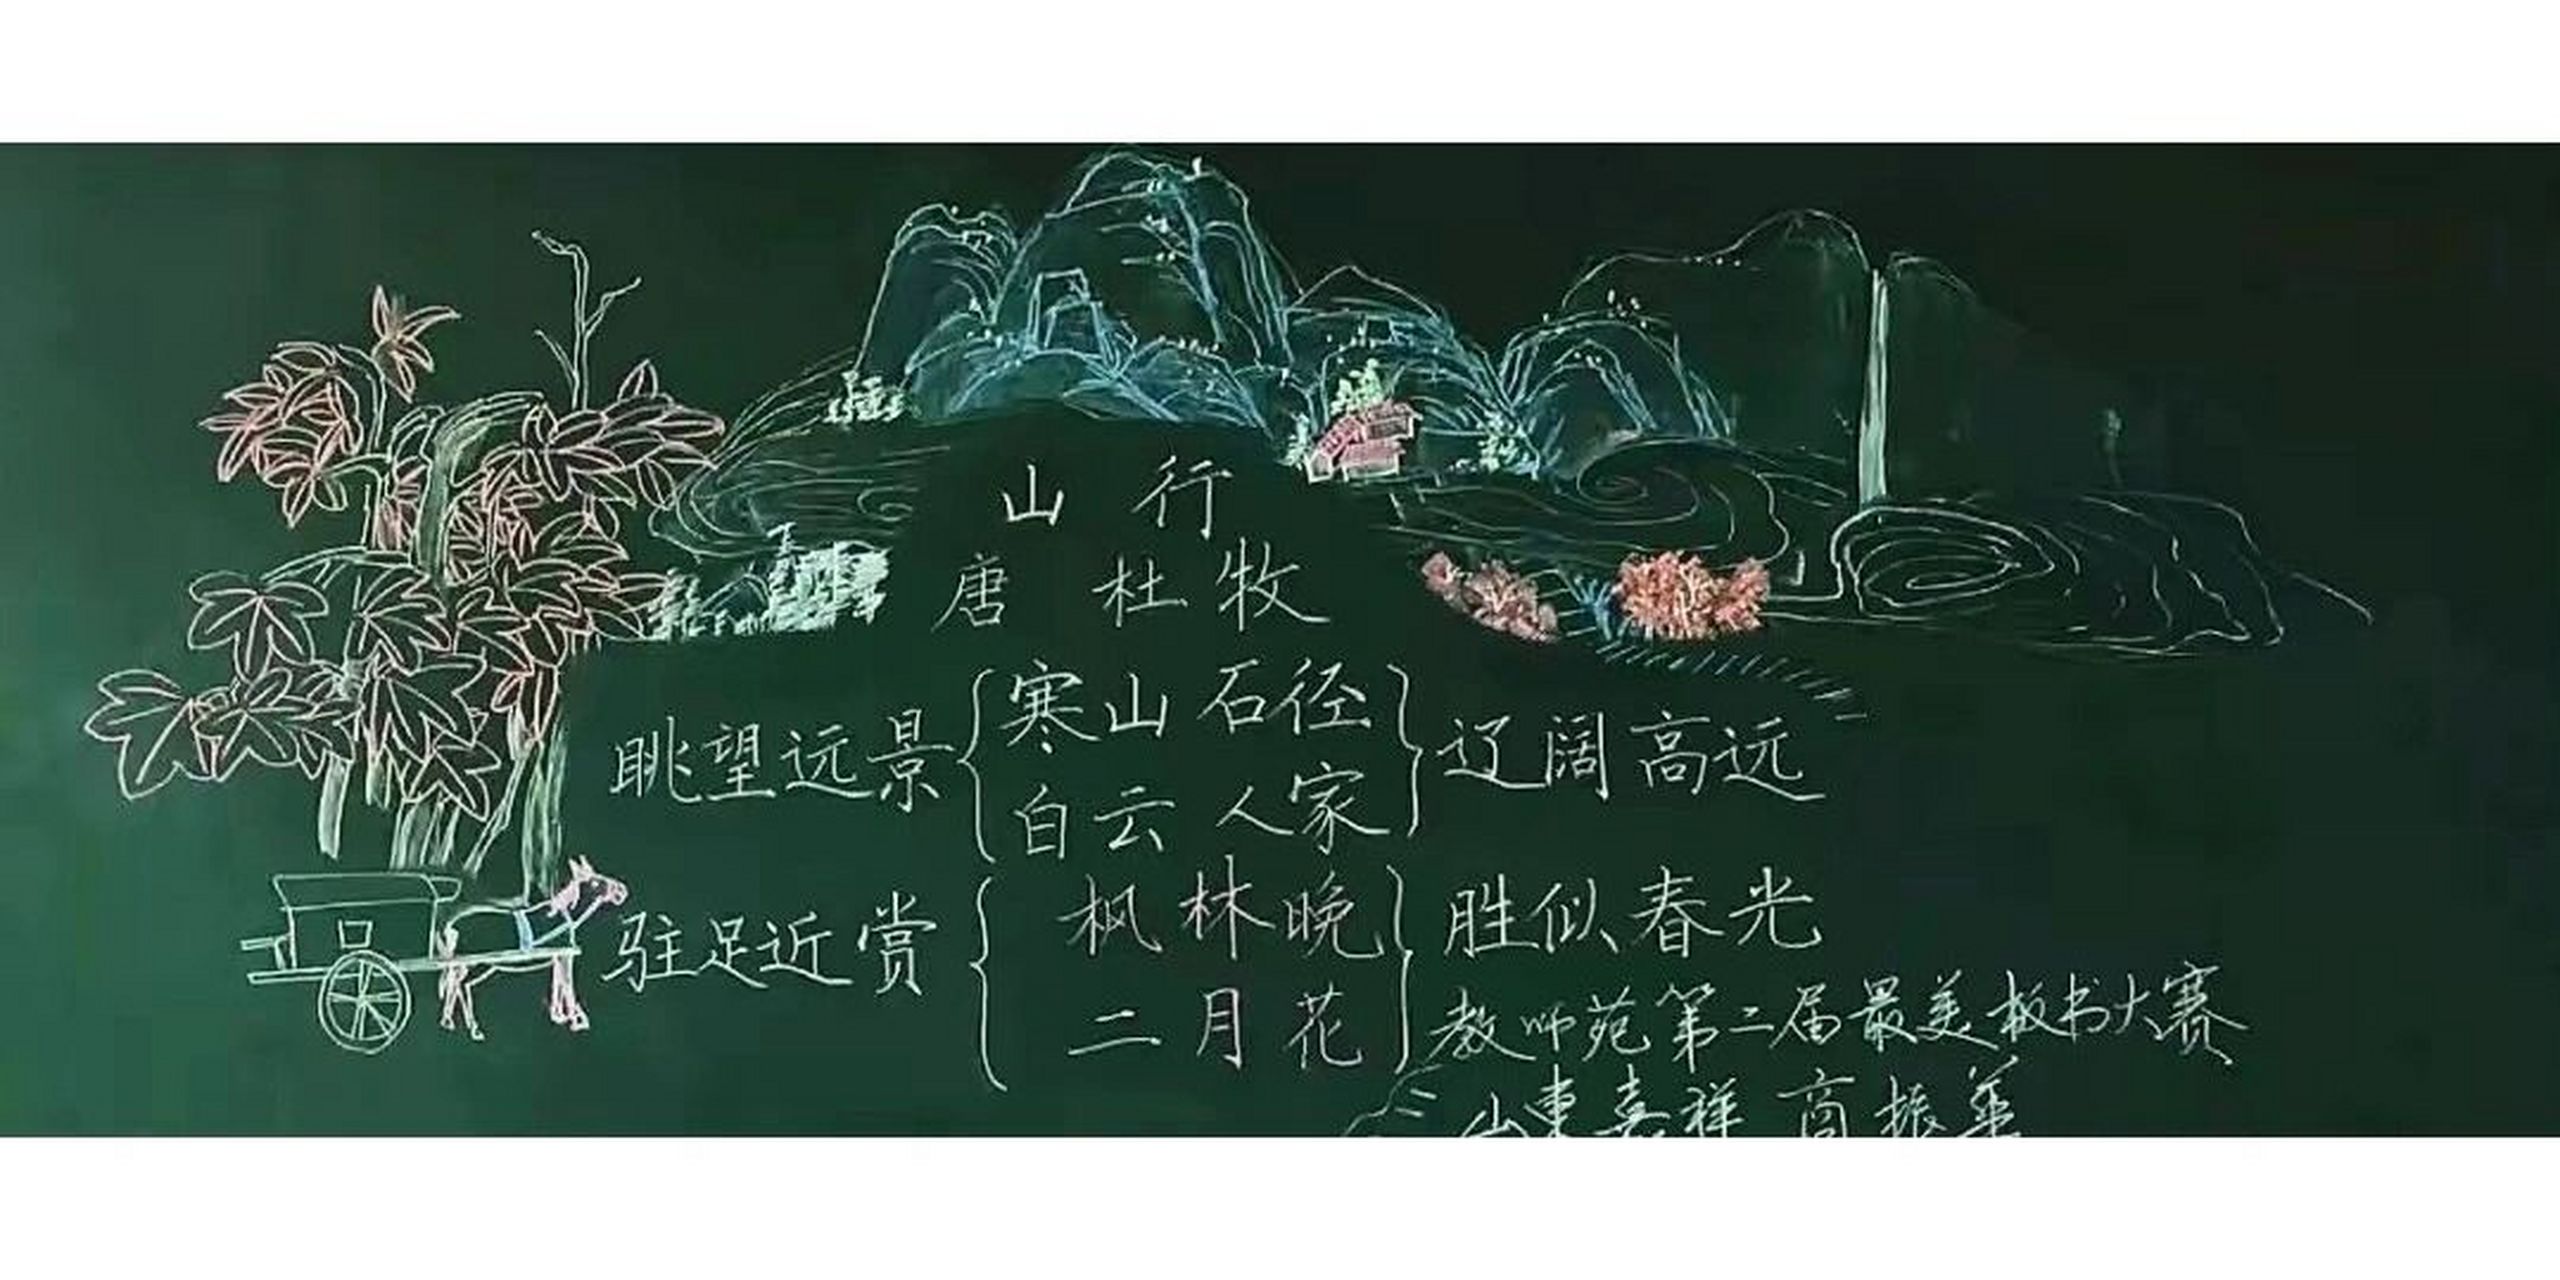 山行
唐 杜牧
眺望远景
寒山 石径
白云 人家
辽阔高远
驻足近赏
枫林晚
二月花
胜似春光
教师苑第二届最美板书大赛
山東嘉祥 商振华